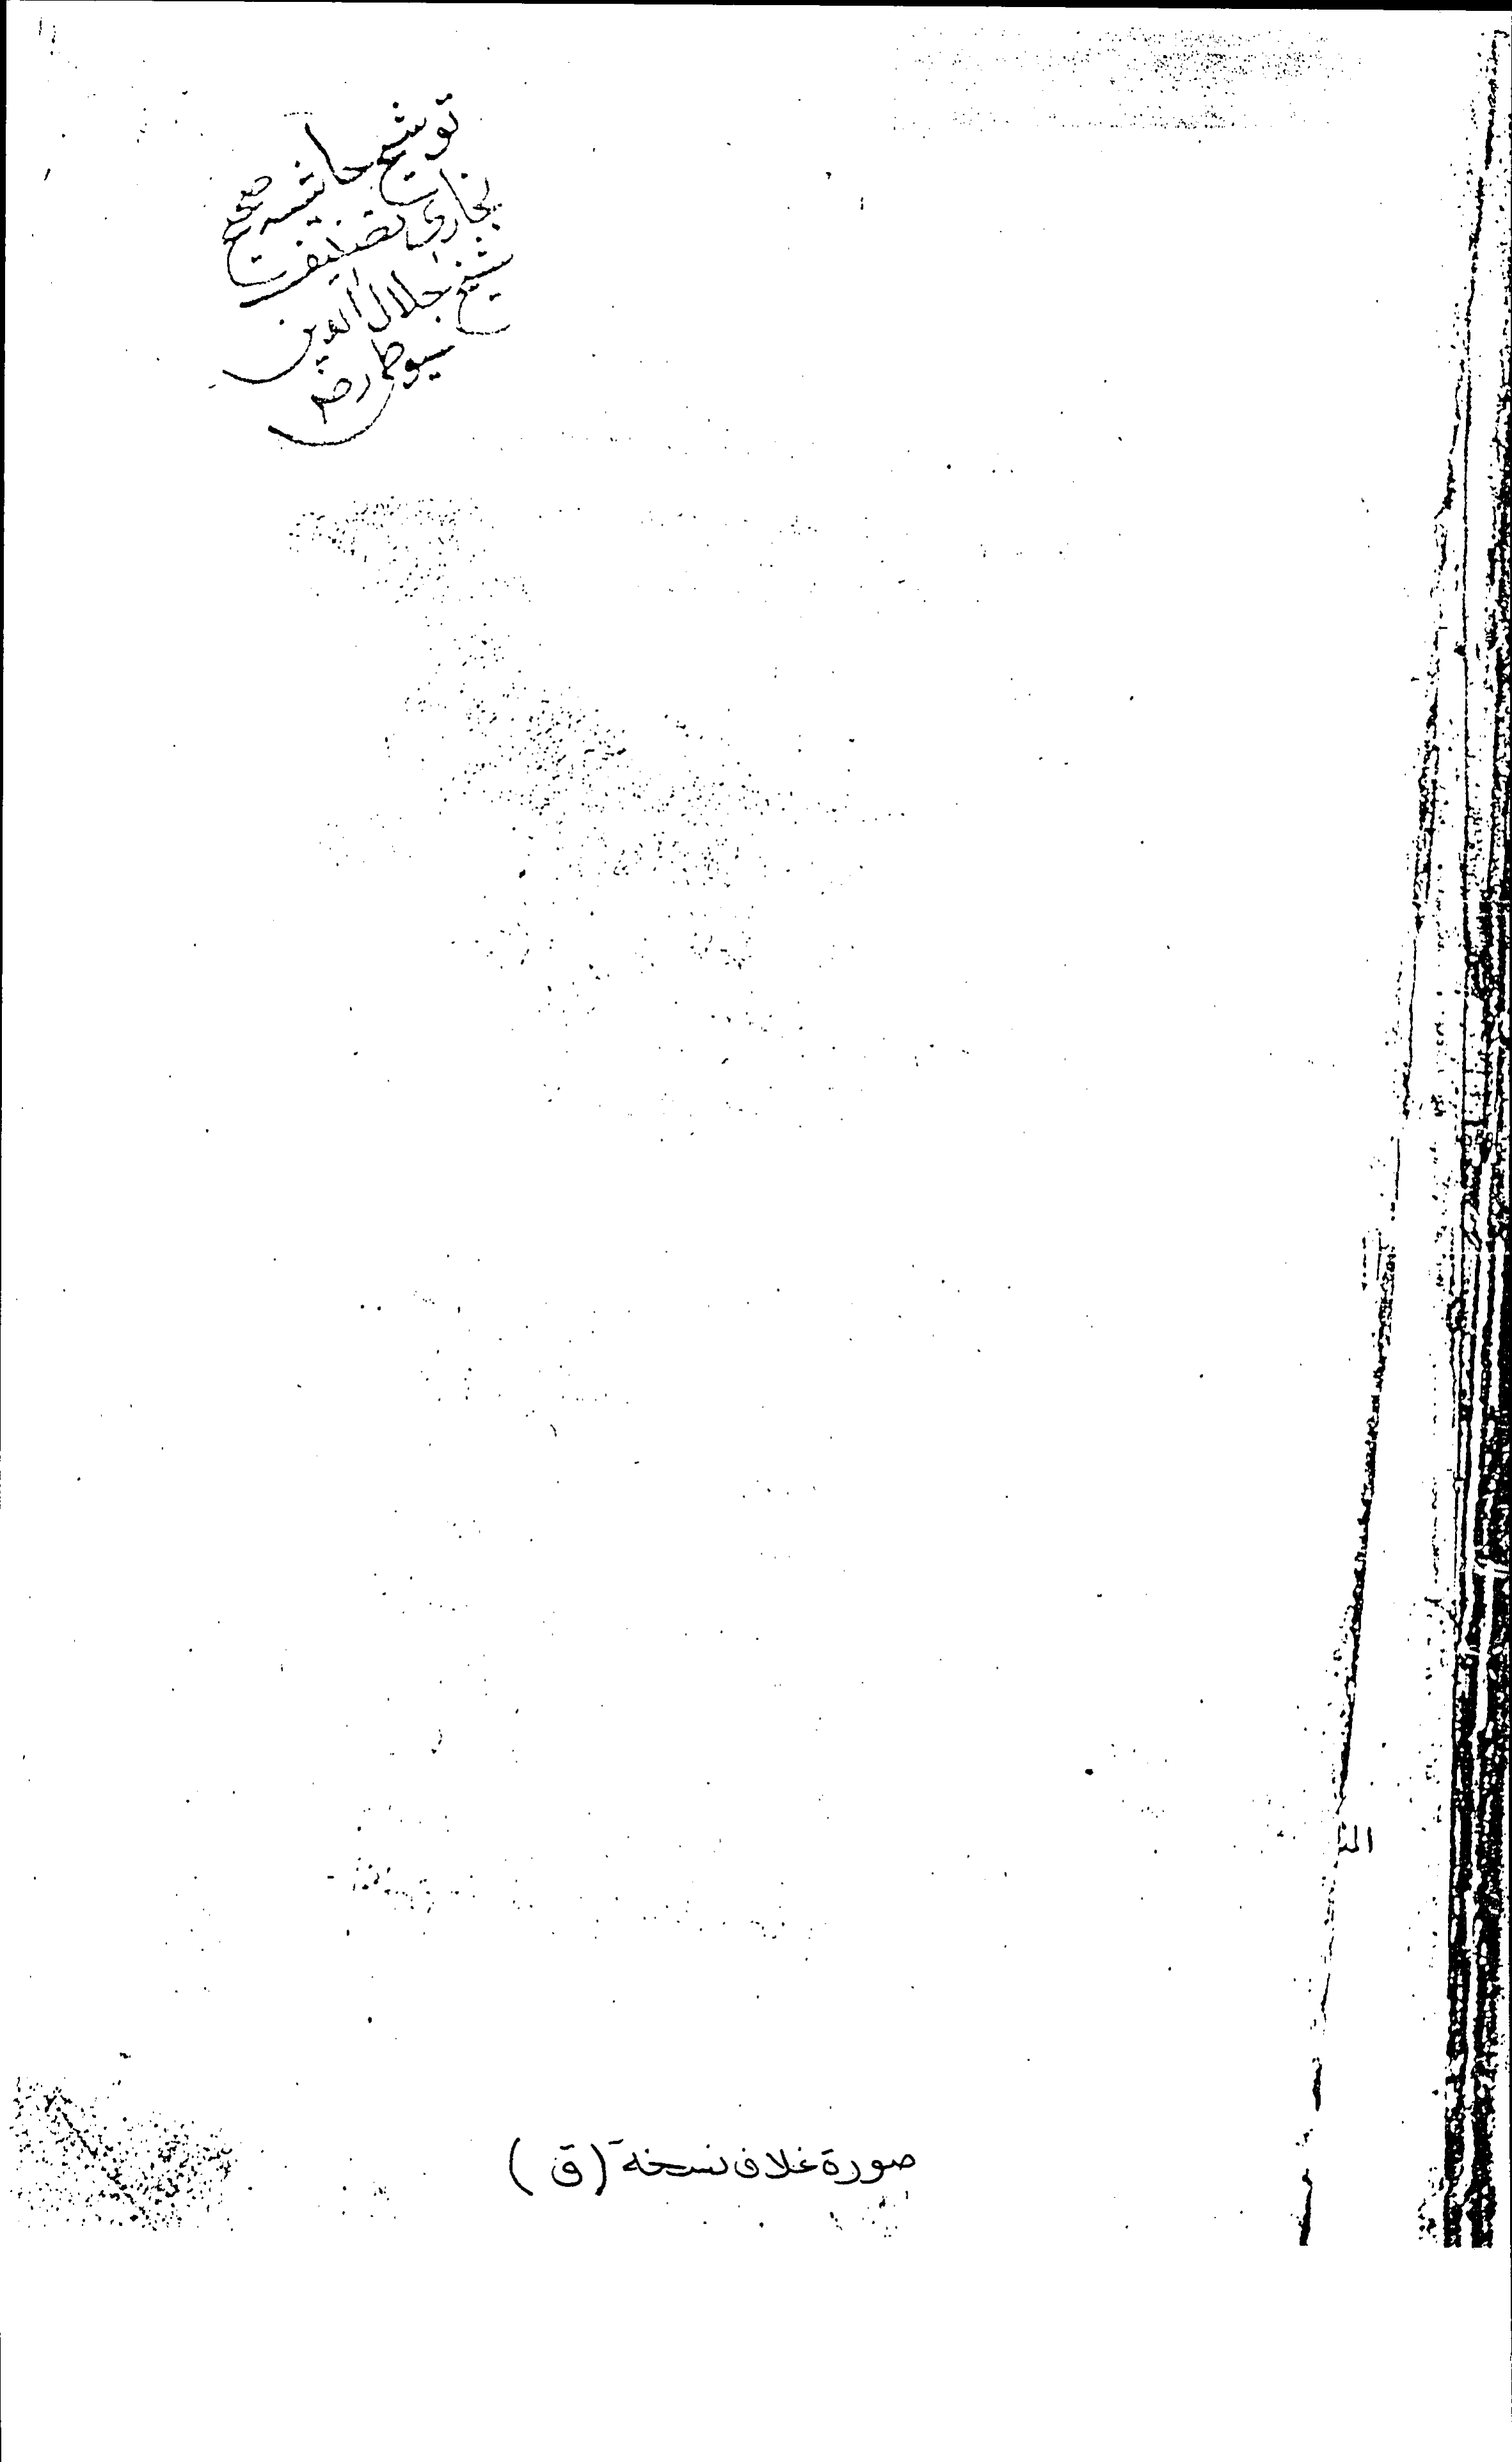 توشيح حاشيه صحيح
بخارى تصنيف
شيخ جلال الدين
سيوطى رضـ
الـ
صورة غلاف نسخة (ق)